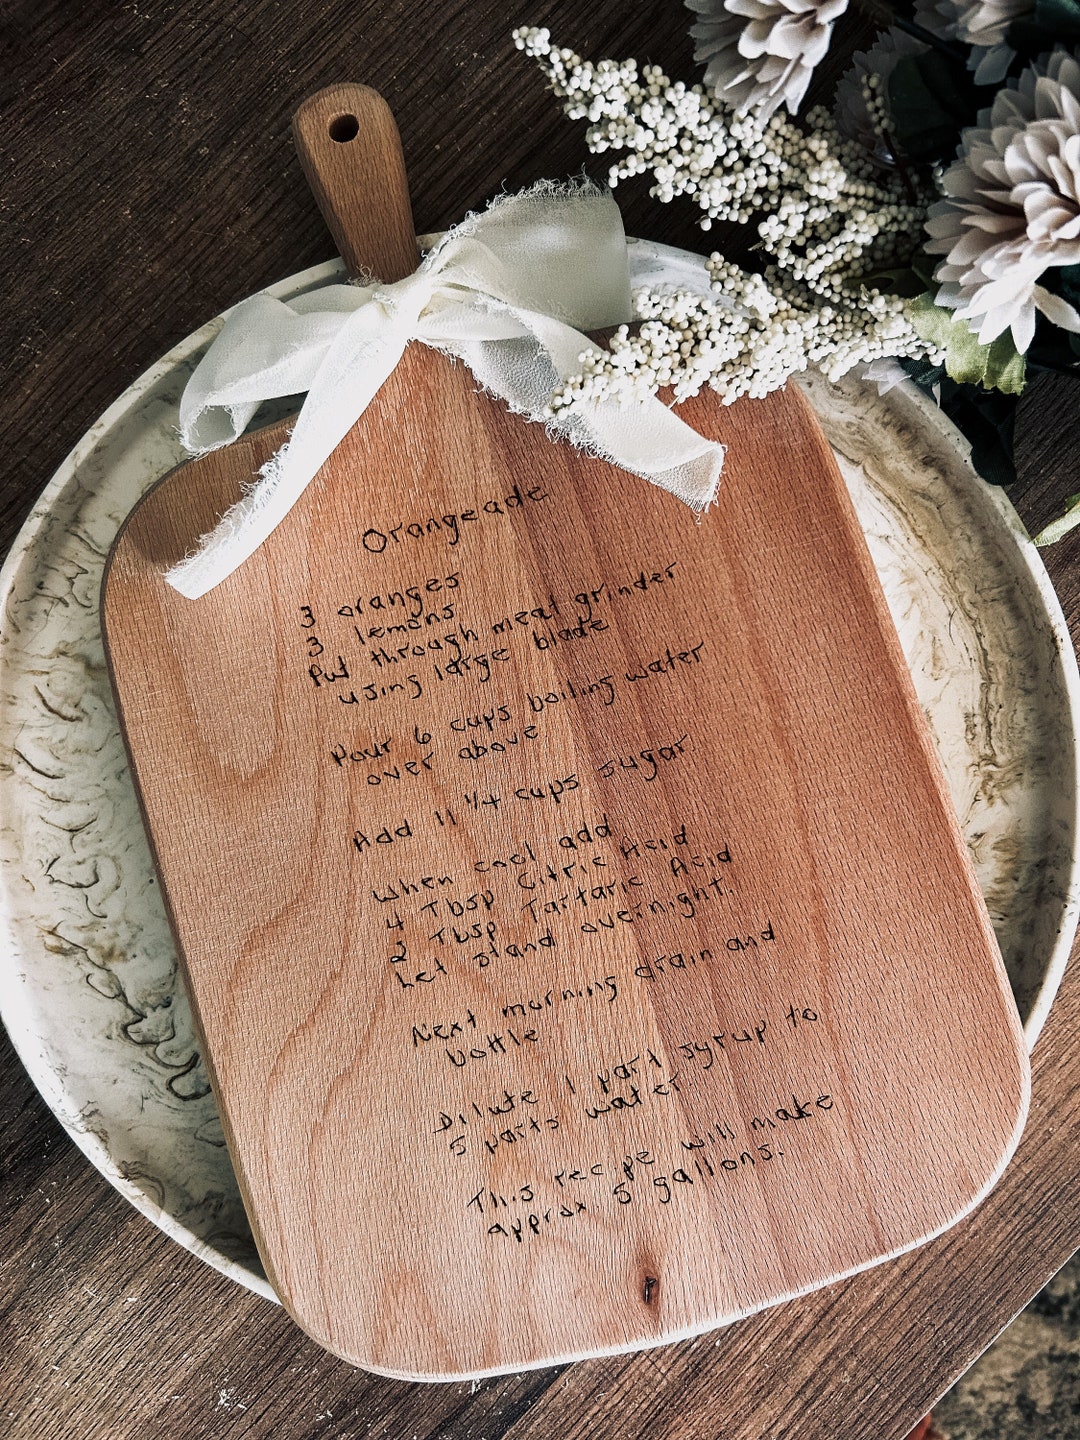 Orangeade
3 oranges
3 lemons
Put through meat grinder
using large blade
Pour 6 cups boiling water
over above
Add 11 1/4 cups sugar
When cool add
4 Tbsp Citric Acid
2 Tbsp Tartaric Acid
Let stand overnight.
Next morning drain and
bottle
Dilute 1 part syrup to
5 parts water
This recipe will make
approx 5 gallons.